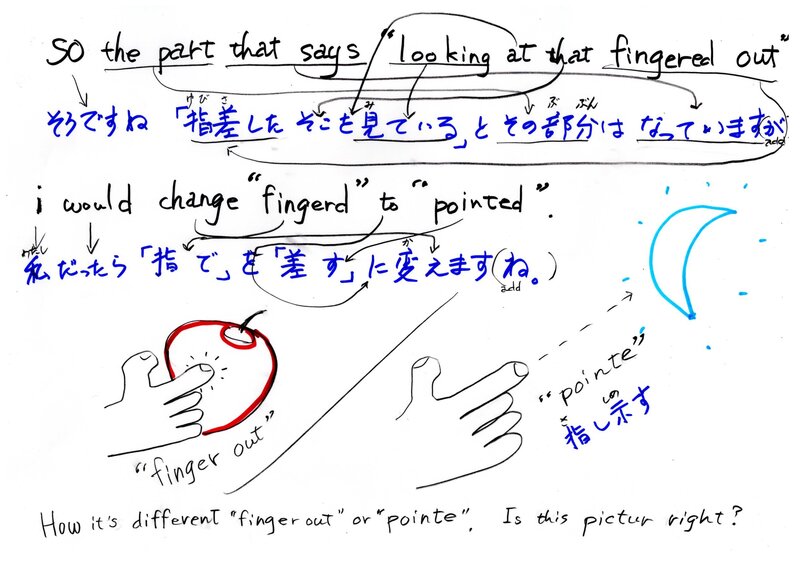 so the part that says "looking at that fingered out"
そうですね 「指差した そこを見ている」と その部分は なっていますが
ゆび さ み ぶ ぶん add
i would change "fingerd" to "pointed".
わたし か add
私だったら 「指で」を「差す」に変えます(ね。)
"finger out"
"pointe"
さ しめ
指し示す
How it's different "finger out" or "pointe". Is this pictur right?